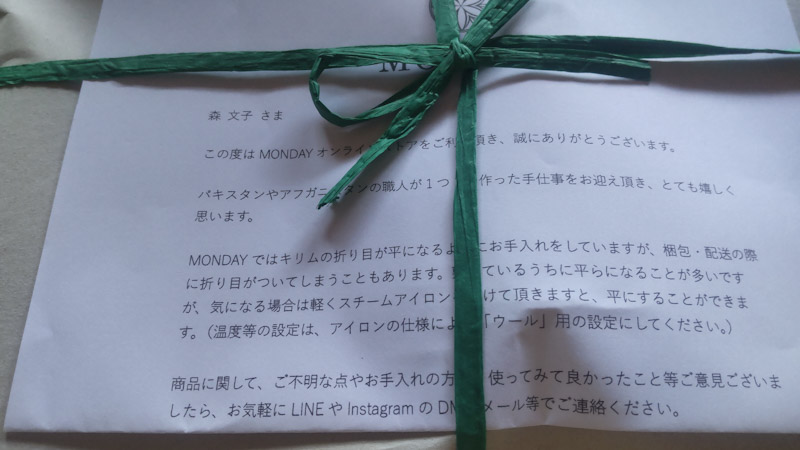 M
森 文子 さま
この度は MONDAY オンライン トアをご利 頂き、誠にありがとうございます。
パキスタンやアフガニ タンの職人が1つ 作った手仕事をお迎え頂き、とても嬉しく
思います。
MONDAY ではキリムの折り目が平になるよ にお手入れをしていますが、梱包・配送の際
に折り目がついてしまうこともあります。 ているうちに平らになることが多いです
が、気になる場合は軽くスチームアイロン けて頂きますと、平にすることができま
す。（温度等の設定は、アイロンの仕様によ 「ウール」用の設定にしてください。）
商品に関して、ご不明な点やお手入れの方 使ってみて良かったこと等ご意見ございま
したら、お気軽に LINE や Instagram の DM メール等でご連絡ください。